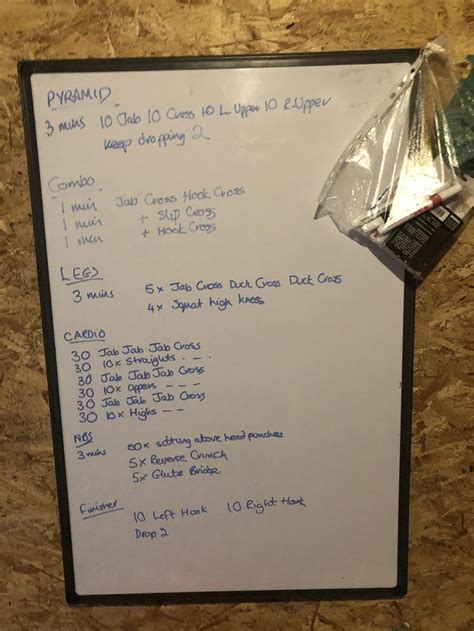 PYRAMID
3 mins 10 Jab 10 Cross 10 L.Upper 10 R.Upper
keep dropping 2
Combo
1 min Jab Cross Hook Cross
1 min + Slip Cross
1 min + Hook Cross
LEGS
3 mins 5x Jab Cross Duck Cross Duck Cross
4x Squat high knees
CARDIO
30 Jab Jab Jab Cross
30 10x Straights - - -
30 Jab Jab Jab Cross
30 10x Uppers - - -
30 Jab Jab Jab Cross
30 10x Highs - - -
ABS
3 mins 50x sitting above head punches
5x Reverse Crunch
5x Glute Bridge
Finisher
10 Left Hook 10 Right Hook
Drop 2